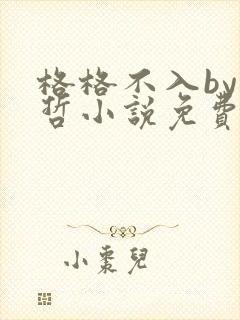 格格不入by
哲小說免費
小棗兒